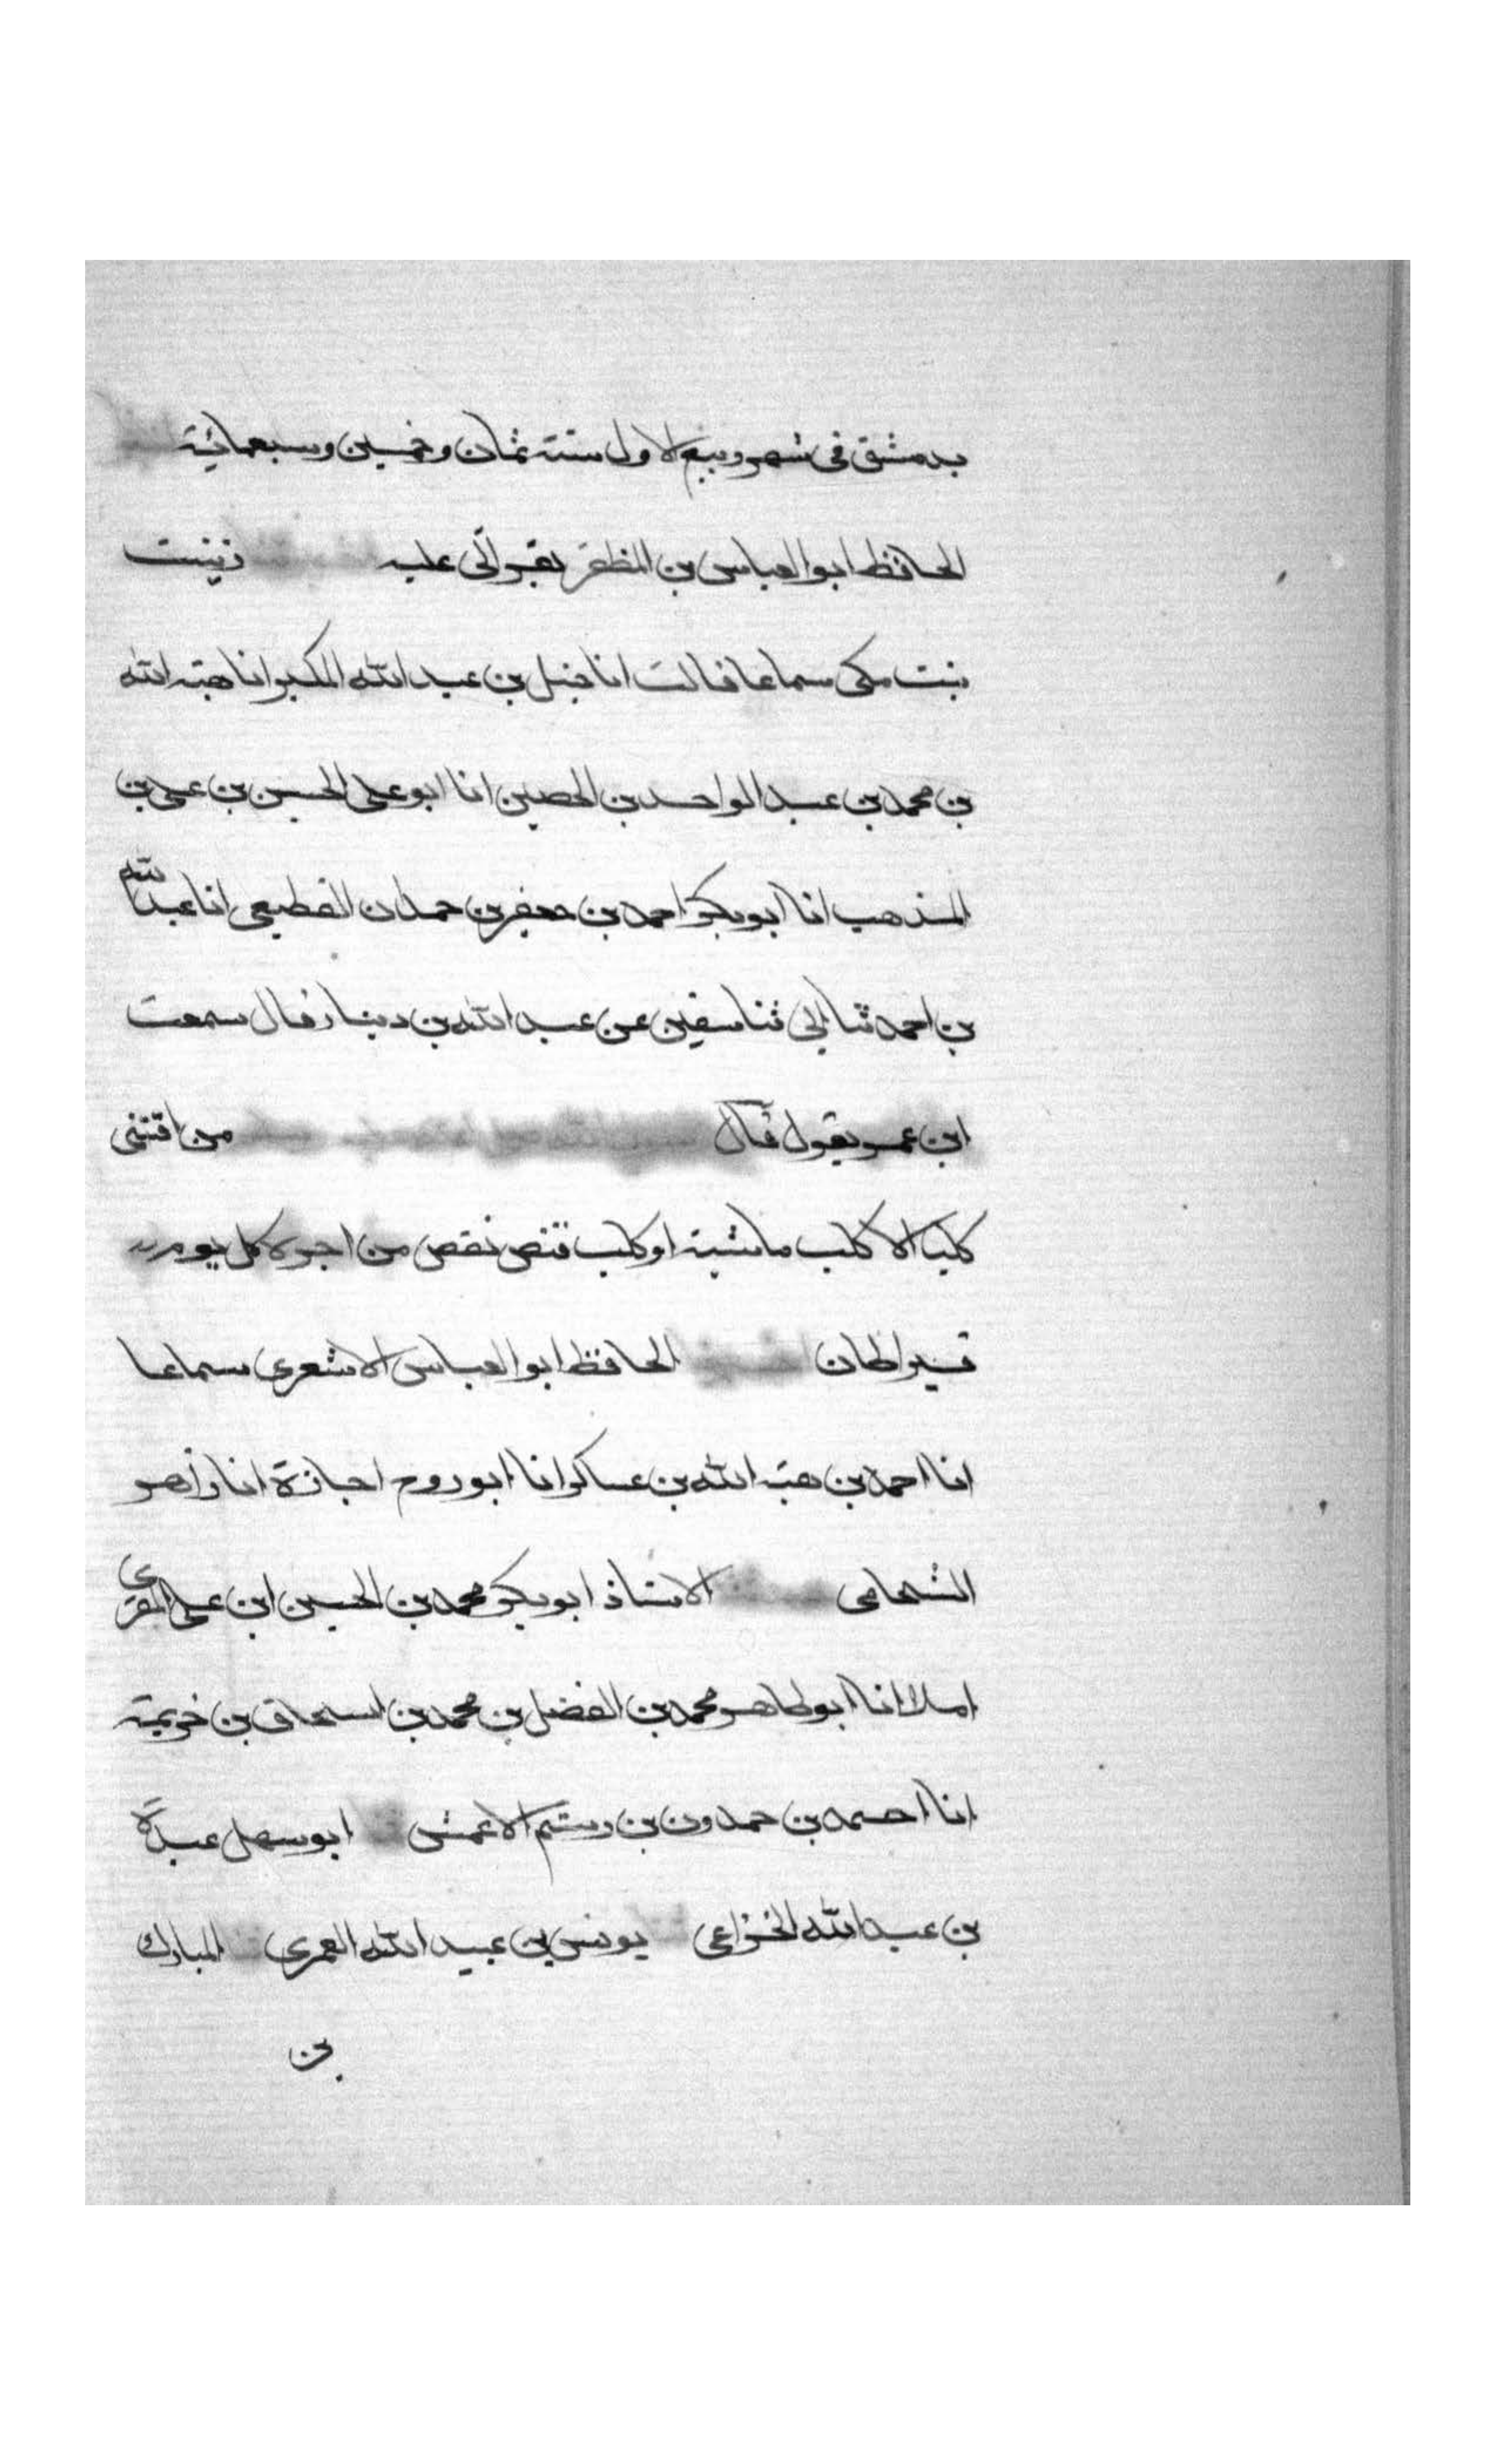 بدمشق فى شهر ربيع الاول سنة ثمان وخمسين وسبعمائية
الحافظ ابو العباس بن المظفر بقرأتى عليه زينب
بنت مكى سماعا قالت انا حنبل بن عبد الله المكبر انا هبة الله
بن محمد بن عبد الواحد بن الحصين انا ابو على الحسن بن على بن
المذهب انا ابو بكر احمد بن جعفر بن حمدان القطيعى انا عبد الله
بن احمد ثنا ابى ثنا سفين عن عبد الله بن دينار قال سمعت
ابن عمر يقول قال من اقتنى
كلبا الا كلب ماشية او كلب قنص نقص من اجره كل يوم
قيراطان الحافظ ابو العباس الاشعرى سماعا
انا احمد بن هبة الله بن عساكر انا ابو روح اجازة انا زاهر
الشحامى الاستاذ ابو بكر محمد بن الحسين ابن على المقرى
املا انا ابو طاهر محمد بن الفضل بن محمد بن اسحاق بن خزيمة
انا احمد بن حمدون بن رستم الاعمش ابو سهل عبدة
بن عبد الله الخزاعى يونس بن عبيد الله العمرى المبارك
بن